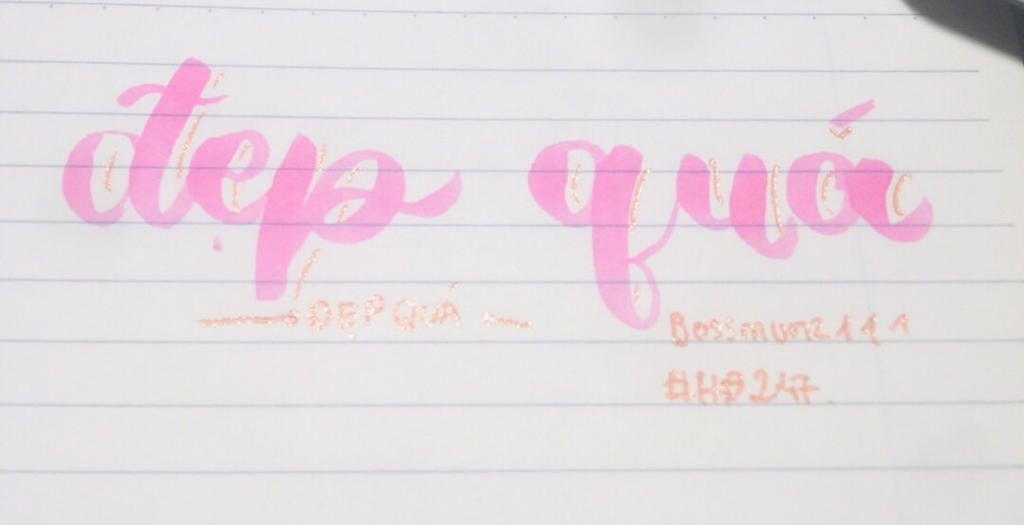 đẹp quá
ĐẸP QUÁ
Bossmunz111
#HĐ247